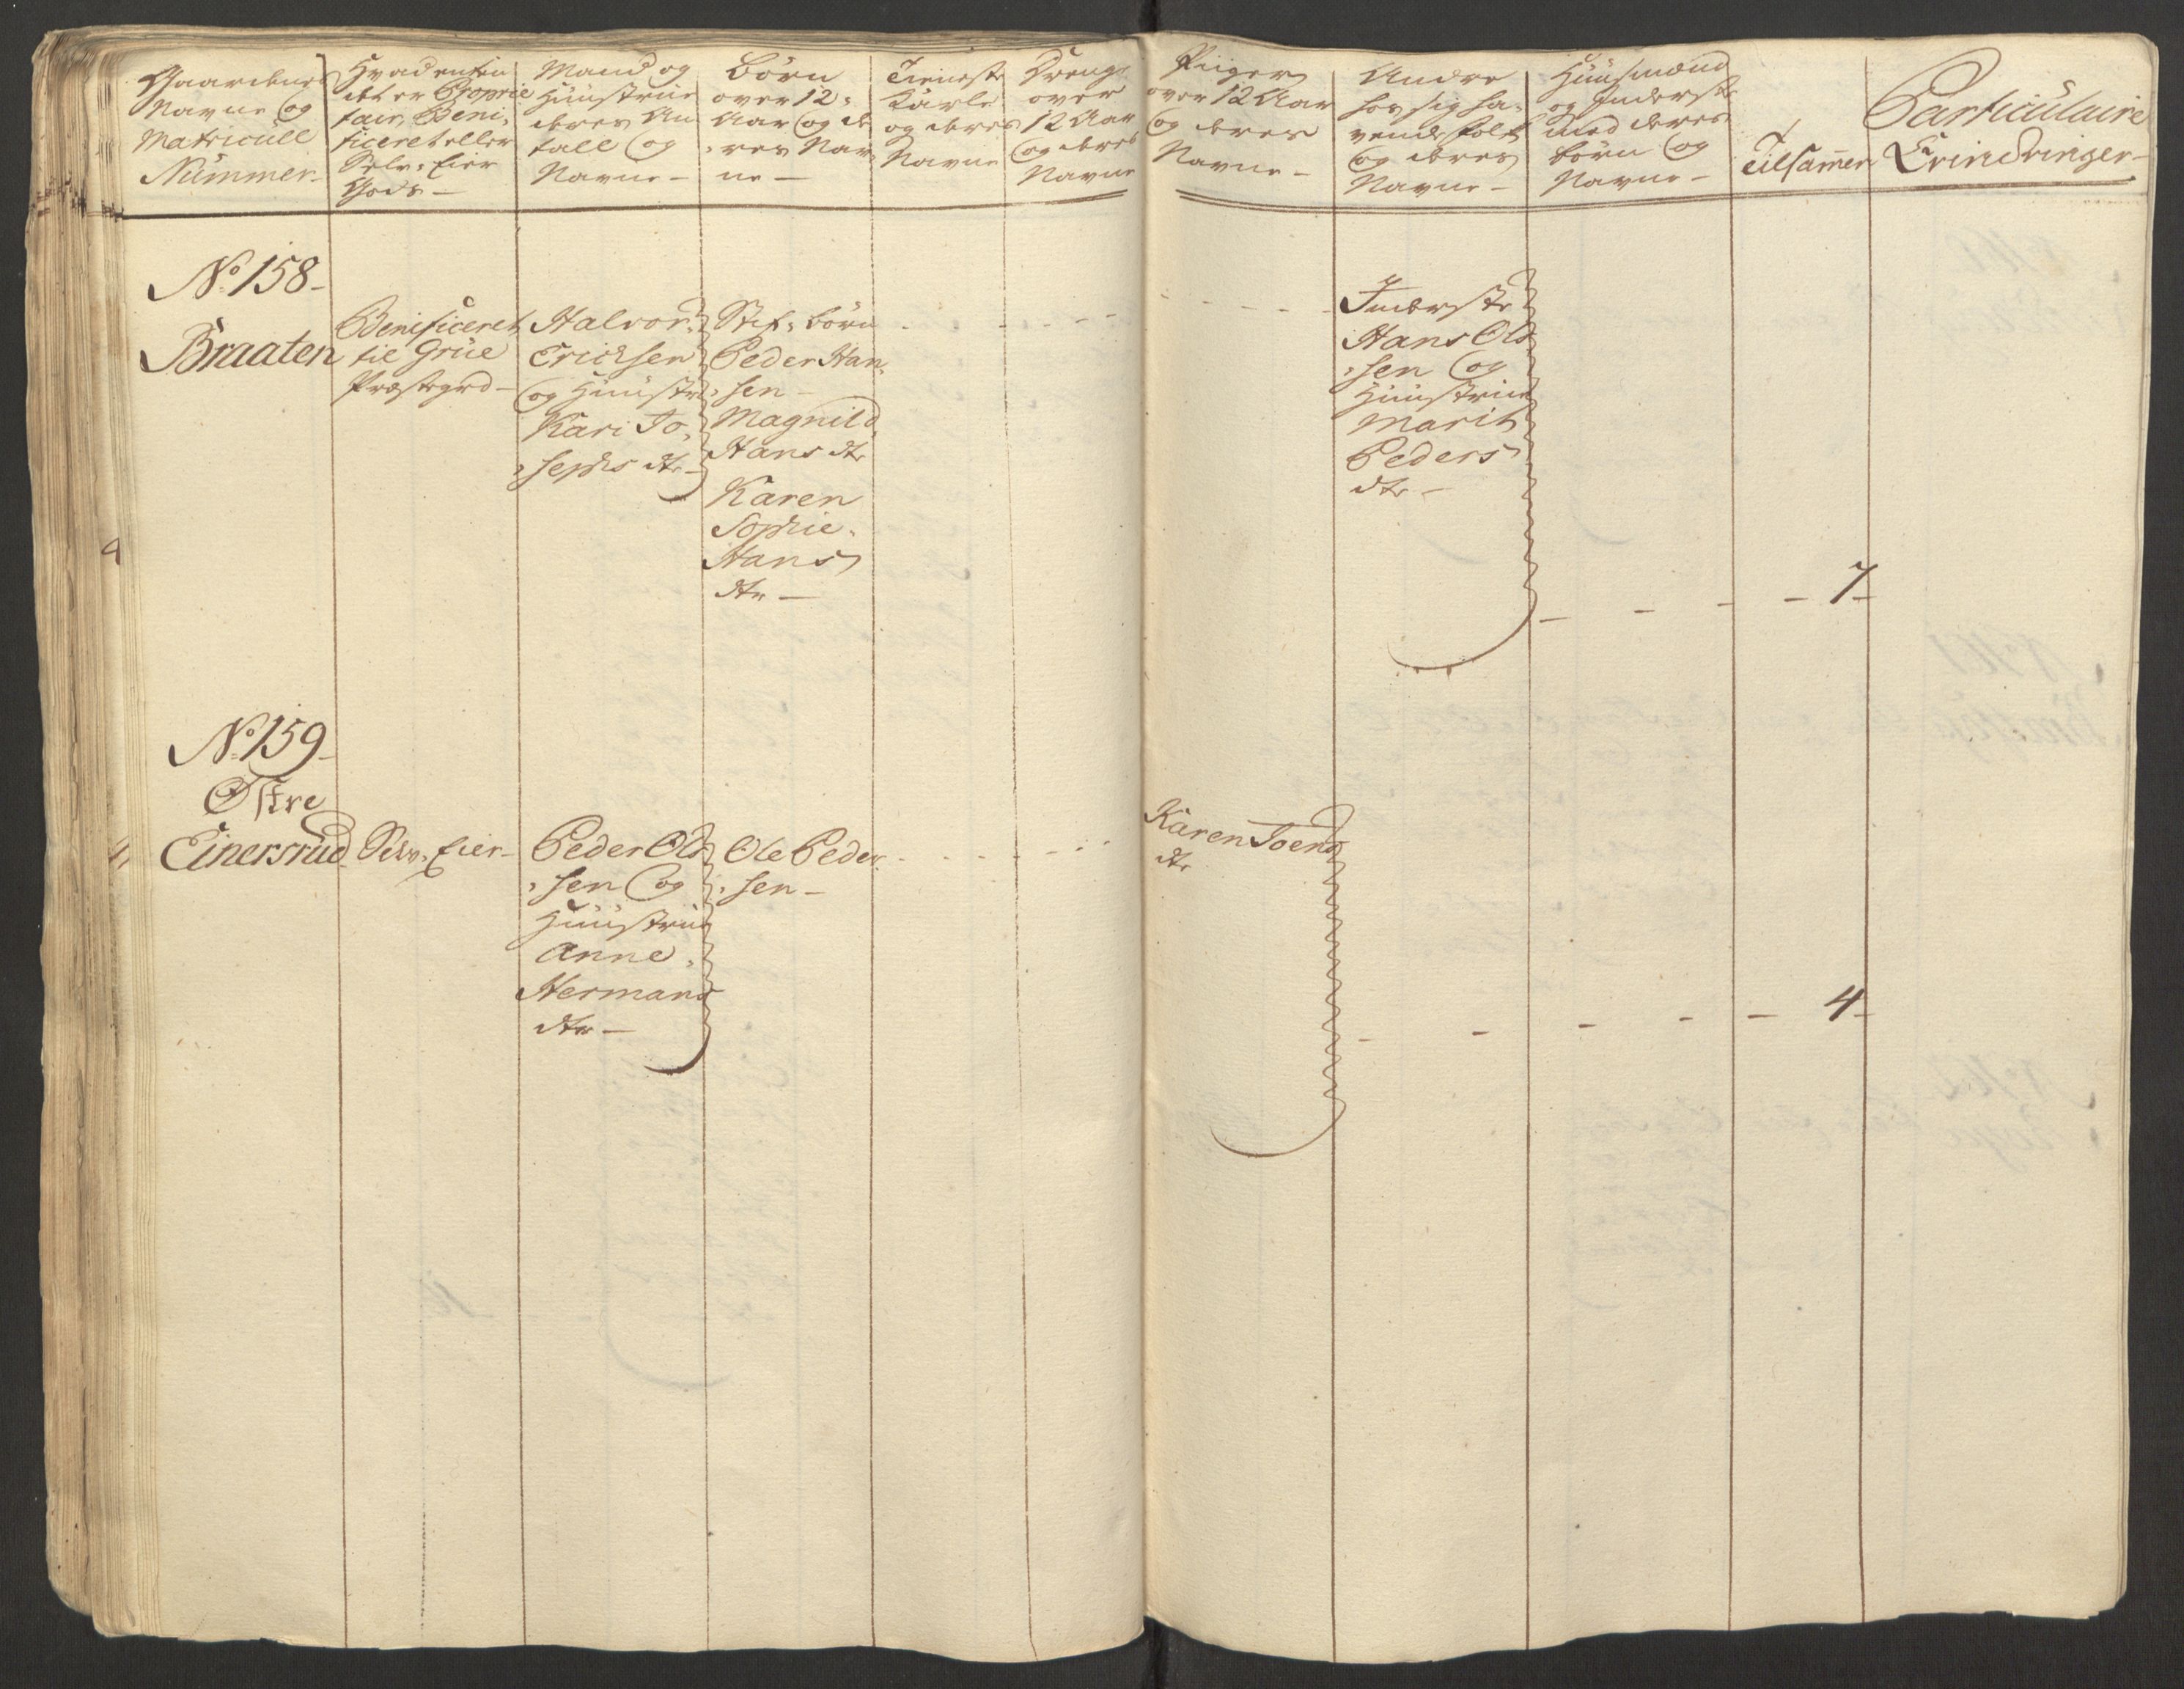 Gaardenes
Navne og
Matricull
Nummer
Hvad enten
det er Proprie
tair, Beni,
ficeret eller
Selv, Eier
Gods —
Mand og
Huustrue
deres An
tall og
Navne —
Börn
over 12
Aar og de
, res Nav,
ne —
Tieneste
Karle
og deres
Navne
Drenge
over
12 Aar
og deres
Navne
Piiger
over 12 Aar
og deres
Navne —
Andre
hos sig ha,
vende Folk
og deres
Navne —
Huusmænd
og Inderster
med deres
börn og
Navne —
Tilsam̅en
Particulaire
Erindringer —
No 158 —
Braaten
Benificeret
til Grue
Præstegrd —
Halvor
Erichsen
og Huustr
Kari Jo,
, sephs dtr —
Stif, börn
Peder Han,
, sen —
Magnild
Hans dtr
Karen
Sophie
Hans
dtr —
Inderste
Hans Ol
, sen og
Huustrue
Marit
Peders
dtr —
7 —
No 159 —
Østre
Einersrud
Selv, Eier —
Peder Ol
, sen og
Huustrue
Anne
Hermans
dtr —
Ole Peder
, sen —
Karen Joens
dtr
4 —